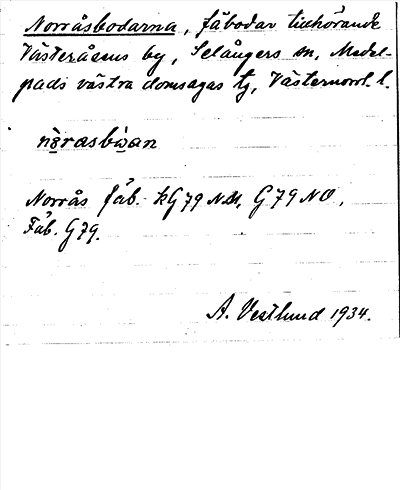 Norråsbodarna, fäbodar tillhörande
Västeråsens by, Selångers sn, Medel-
pads västra domsagas tg, Västernorrl. l.
Norrås fäb. kG79 NO.
Fäb. G79.
A. Vestlund 1934.